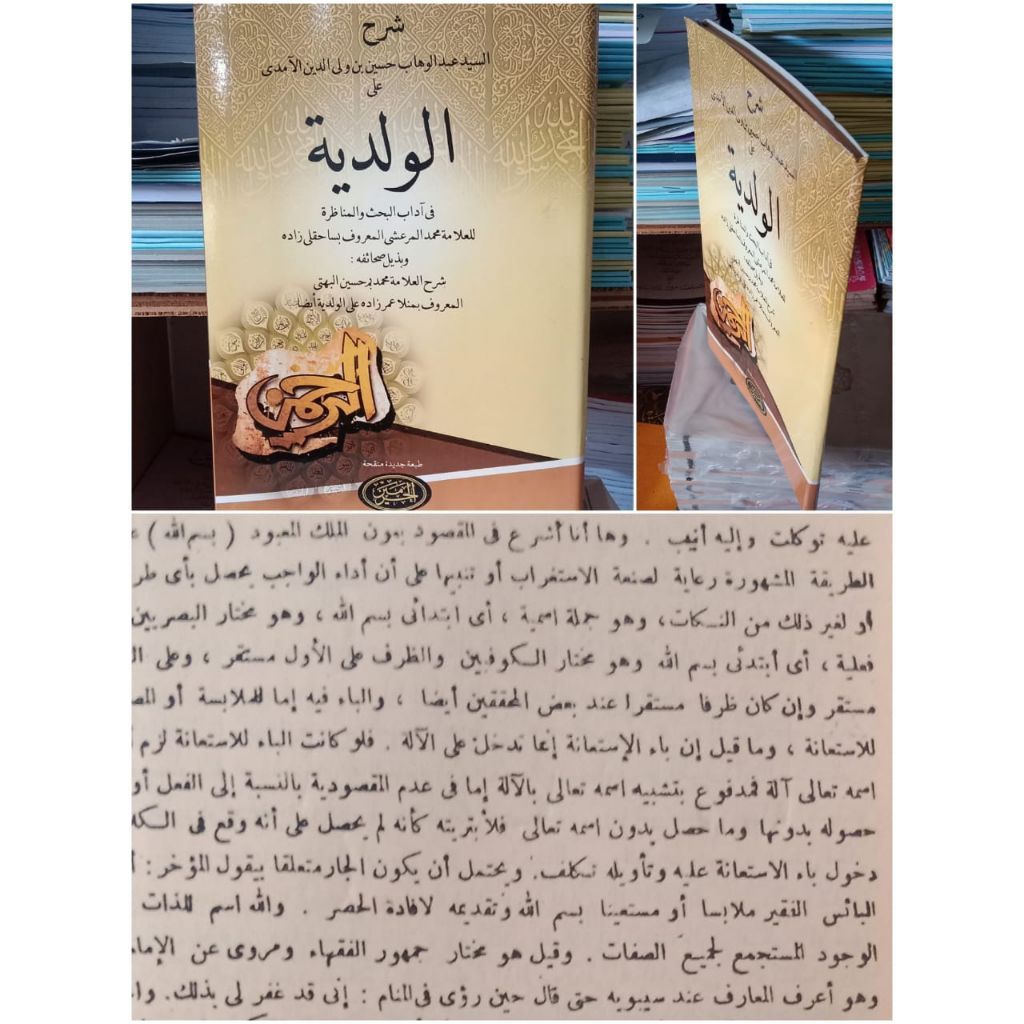 شرح
السيد عبد الوهاب حسين بن ولى الدين الآمدى
على
الولدية
فى آداب البحث والمناظرة
للعلامة محمد المرعشى المعروف بساحقلى زاده
وبذيل صحائفه :
شرح العلامة محمد بن حسين البهتى
المعروف بمنلا عمر زاده على الولدية أيضا
الرحمن
طبعة جديدة منقحة
الحرمين
شرح
السيد عبد الوهاب حسين بن ولى الدين الآمدى
على
الولدية
عليه توكلت وإليه أنيب . وها أنا أشرع فى المقصود بعون الملك المعبود ( بسم الله )
الطريقة المشهورة رعاية لصنعة الاستغراب أو تنبيها على أن أداء الواجب يحصل بأى طر
أو لغير ذلك من النكات، وهو جملة اسمية ، أى ابتدائى بسم الله ، وهو مختار البصريين
فعلية ، أى أبتدئى بسم الله وهو مختار الكوفيين والظرف على الأول مستقر ، وعلى ال
مستقر وإن كان ظرفا مستقرا عند بعض المحققين أيضا ، والباء فيه إما للملابسة أو المص
للاستعانة ، وما قيل إن باء الإستعانة إنما تدخل على الآلة . فلو كانت الباء للاستعانة لزم
اسمه تعالى آلة فمدفوع بتشبيه اسمه تعالى بالآلة إما فى عدم المقصودية بالنسبة إلى الفعل أو
حصوله بدونها وما حصل بدون اسمه تعالى فلأبتريته كأنه لم يحصل على أنه وقع فى الك
دخول باء الاستعانة عليه وتأويله تكلف. ويحتمل أن يكون الجار متعلقا بيقول المؤخر :
البائس الفقير ملابسا أو مستعينا بسم الله وتقديمه لافادة الحصر . والله اسم للذات
الوجود المستجمع لجميع الصفات . وقيل هو مختار جمهور الفقهاء ومروى عن الإما
وهو أعرف المعارف عند سيبويه حتى قال حين رؤى فى المنام : إنى قد غفر لى بذلك.